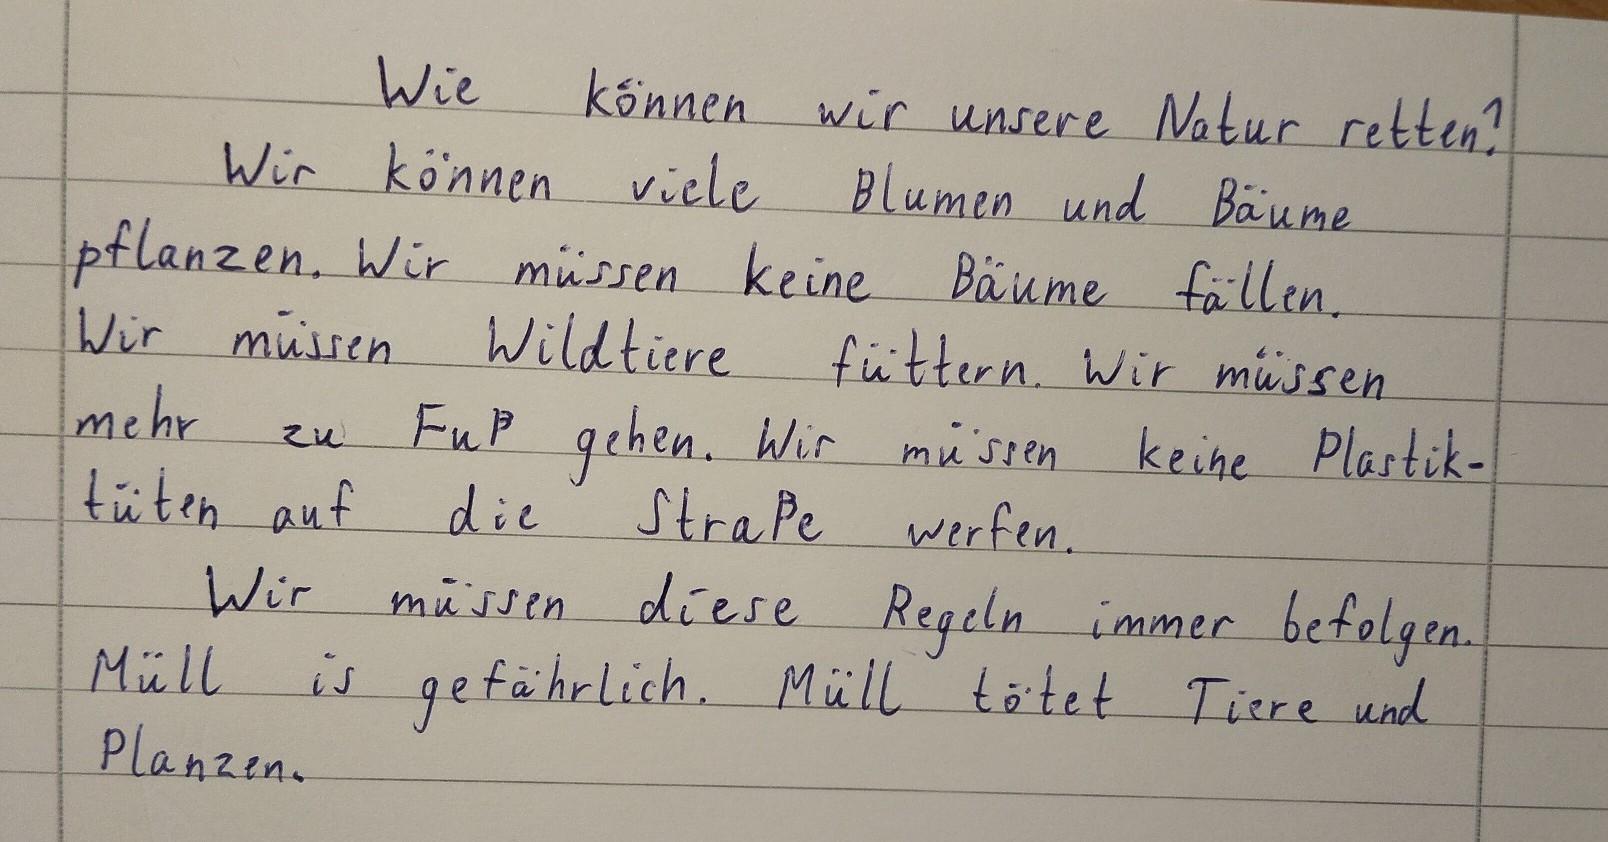 Wie können wir unsere Natur retten?
Wir können viele Blumen und Bäume
pflanzen. Wir müssen keine Bäume fällen.
Wir müssen Wildtiere füttern. Wir müssen
mehr zu Fuß gehen. Wir müssen keine Plastik-
tüten auf die Straße werfen.
Wir müssen diese Regeln immer befolgen.
Müll is gefährlich. Müll tötet Tiere und
Planzen.